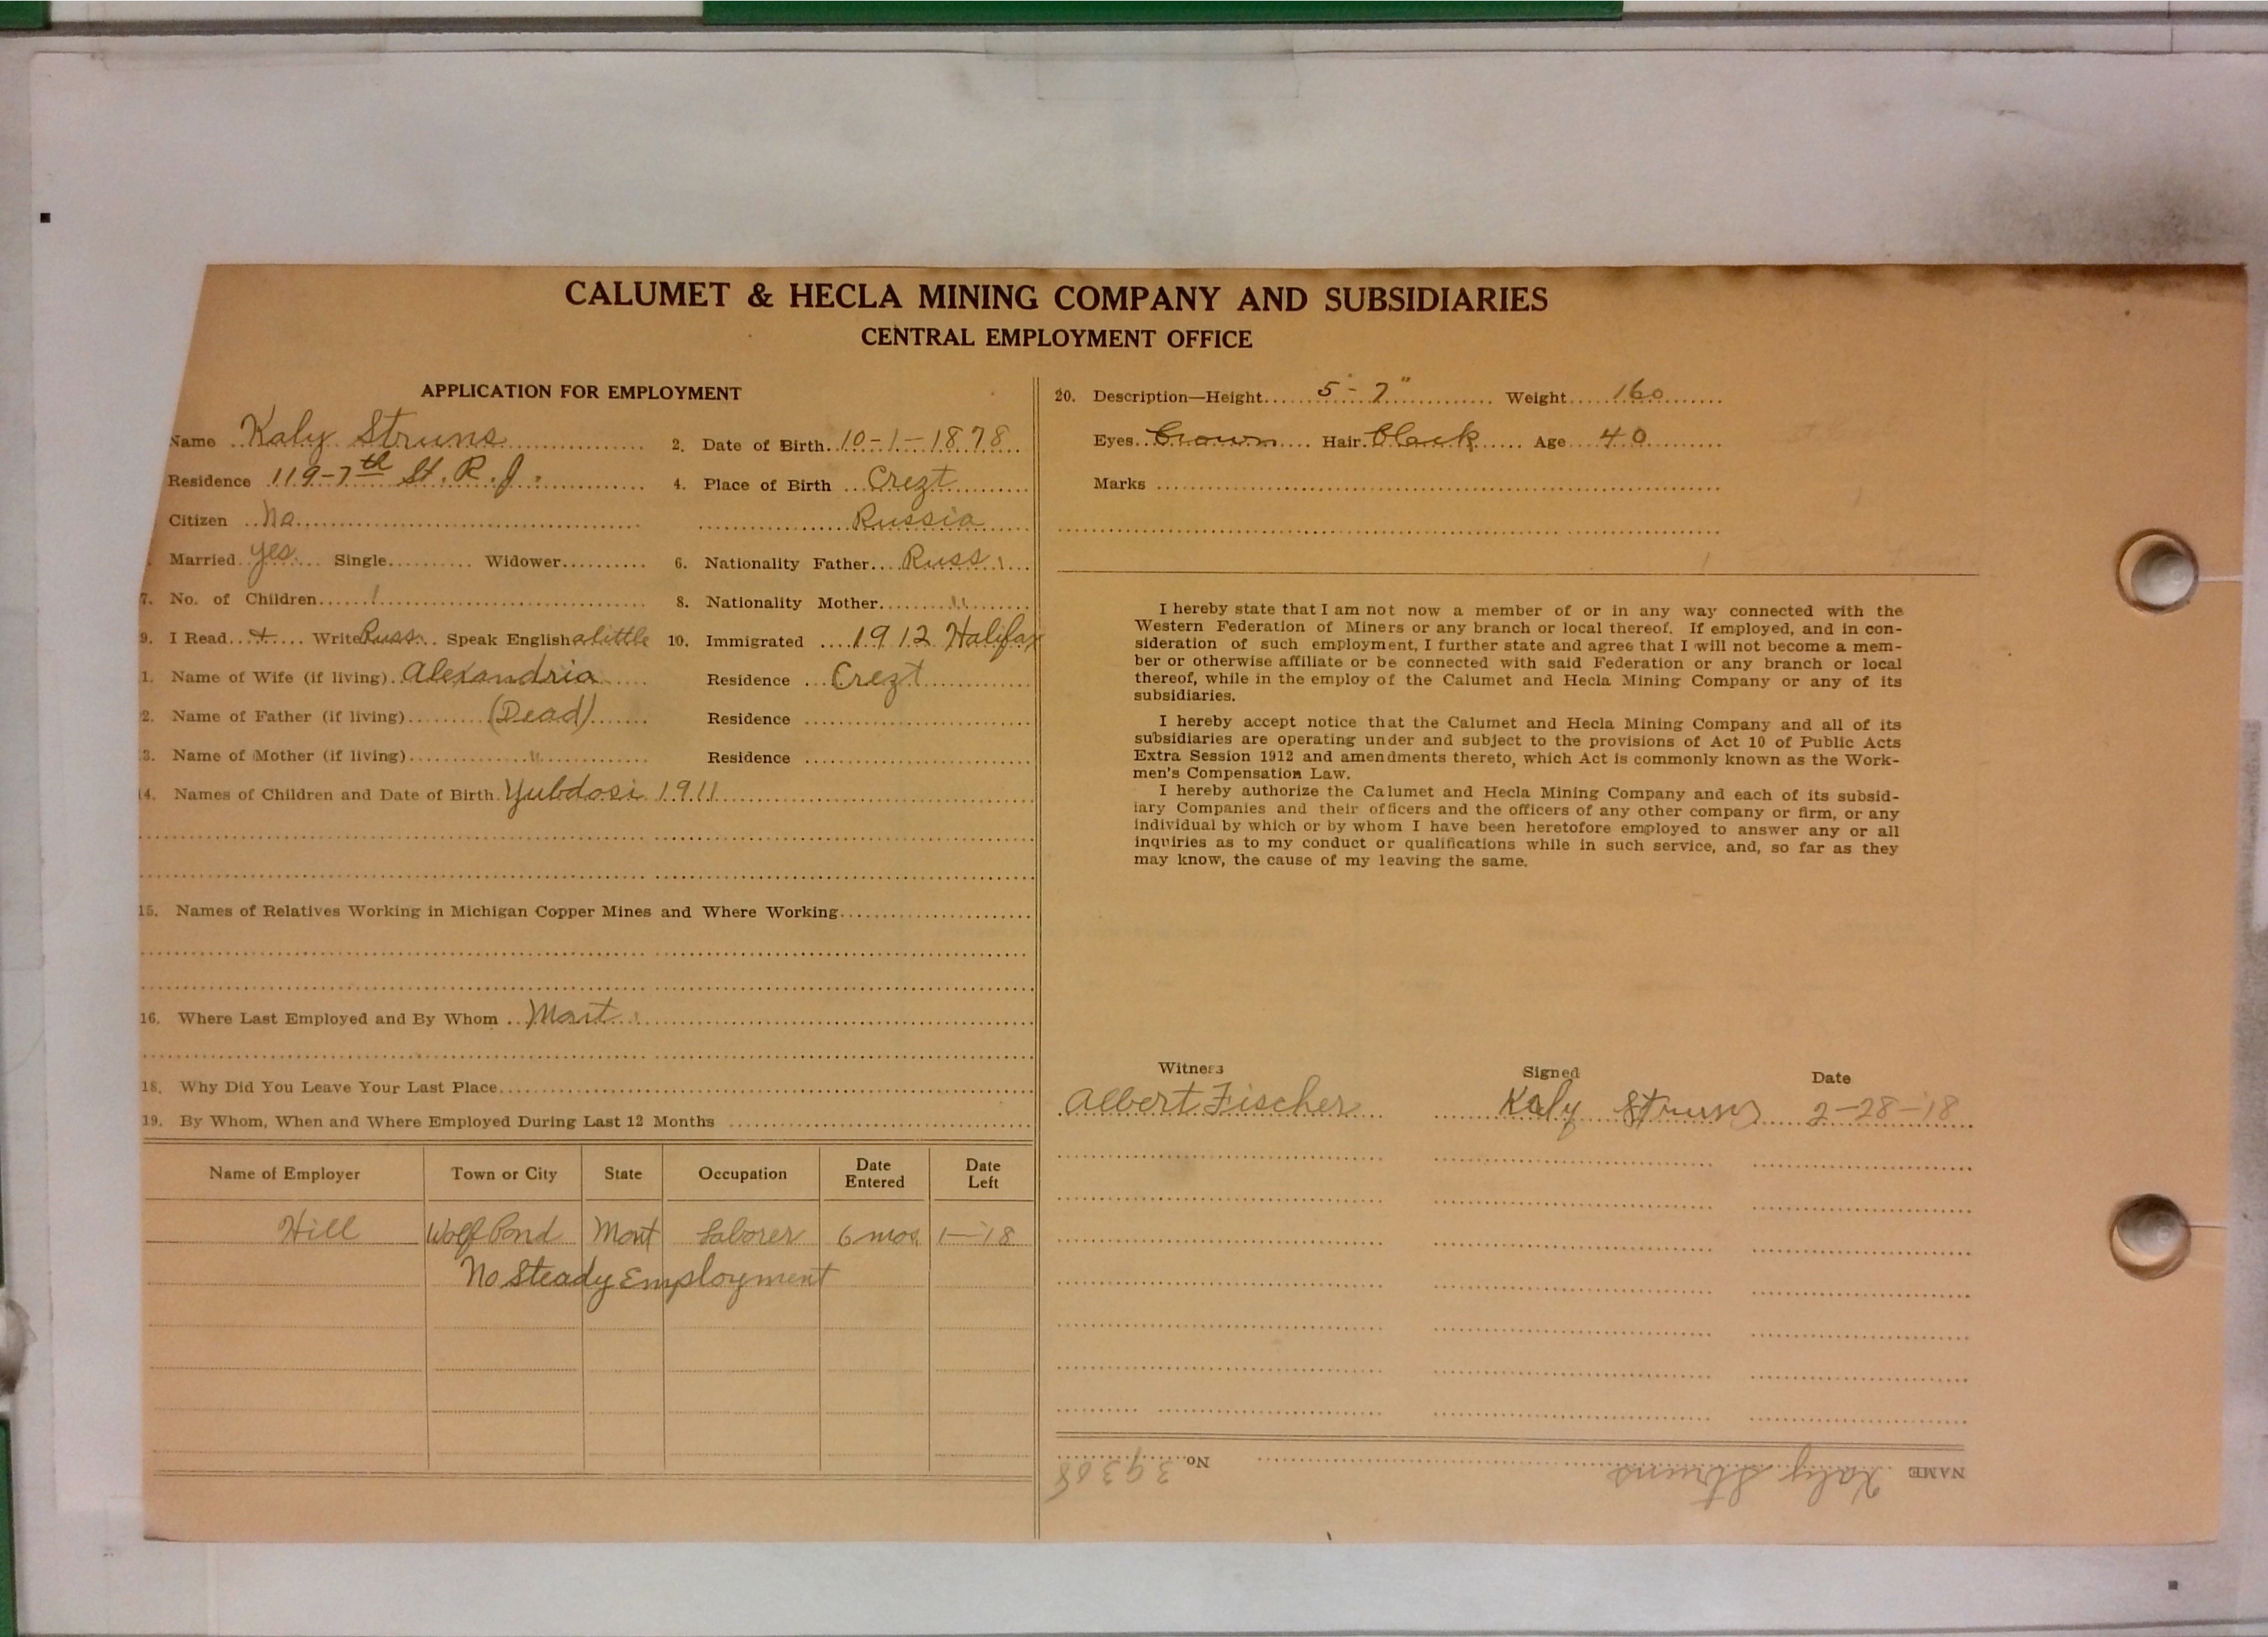 CALUMET & HECLA MINING COMPANY AND SUBSIDIARIES
CENTRAL EMPLOYMENT OFFICE
APPLICATION FOR EMPLOYMENT
Name Kaly Struns
2. Date of Birth 10-1-1878
Residence 119-7th St. R. J.
4. Place of Birth Crezt
Citizen No
Russia
Married yes Single Widower
6. Nationality Father Russ
7. No. of Children 1
8. Nationality Mother "
9. I Read + Write Russ Speak English a little
10. Immigrated 1912 Halifax
1. Name of Wife (if living) Alexandria
Residence Crezt
2. Name of Father (if living) (Dead)
Residence
3. Name of Mother (if living) "
Residence
14. Names of Children and Date of Birth Yubdosi 1911
15. Names of Relatives Working in Michigan Copper Mines and Where Working
16. Where Last Employed and By Whom Mont
18. Why Did You Leave Your Last Place
19. By Whom, When and Where Employed During Last 12 Months
Name of Employer Town or City State Occupation Date Entered Date Left
Hill Wolf Pond Mont Laborer 6 mos. 1-'18
No Steady Employment
20. Description—Height 5'-7" Weight 160
Eyes brown Hair black Age 40
Marks
I hereby state that I am not now a member of or in any way connected with the
Western Federation of Miners or any branch or local thereof. If employed, and in con-
sideration of such employment, I further state and agree that I will not become a mem-
ber or otherwise affiliate or be connected with said Federation or any branch or local
thereof, while in the employ of the Calumet and Hecla Mining Company or any of its
subsidiaries.
I hereby accept notice that the Calumet and Hecla Mining Company and all of its
subsidiaries are operating under and subject to the provisions of Act 10 of Public Acts
Extra Session 1912 and amendments thereto, which Act is commonly known as the Work-
men's Compensation Law.
I hereby authorize the Calumet and Hecla Mining Company and each of its subsid-
iary Companies and their officers and the officers of any other company or firm, or any
individual by which or by whom I have been heretofore employed to answer any or all
inquiries as to my conduct or qualifications while in such service, and, so far as they
may know, the cause of my leaving the same.
Witness Signed Date
Albert Fischer Kaly Struns 2-28-'18
NAME Kaly Struns No. 39308